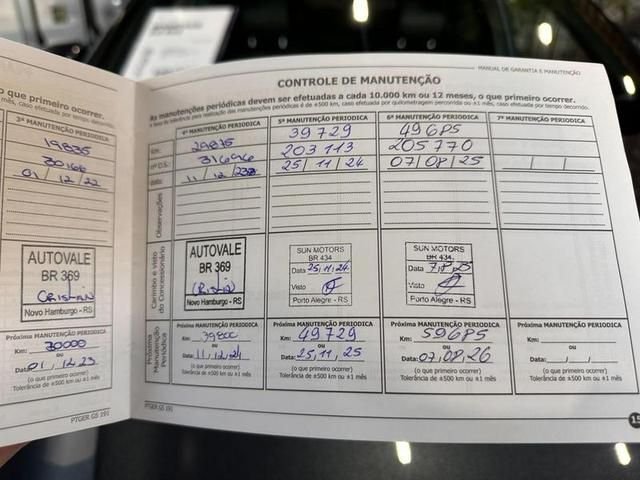 o que primeiro ocorrer.
mês, caso efetuada por tempo decorrido.
3ª MANUTENÇÃO PERIODICA
19835
30166
01 / 12 / 22
AUTOVALE
BR 369
CRISTIAN
Novo Hamburgo - RS
Próxima MANUTENÇÃO PERIODICA
Km: 30000
ou
Data: 01, 12, 23
(o que primeiro ocorrer)
Tolerância de ±500 km ou ±1 mês
PTGER GS 191
MANUAL DE GARANTIA E MANUTENÇÃO
CONTROLE DE MANUTENÇÃO
As manutenções periódicas devem ser efetuadas a cada 10.000 km ou 12 meses, o que primeiro ocorrer.
A faixa de tolerância para realização das manutenções periódicas é de ±500 km, caso efetuada por quilometragem percorrida ou ±1 mês, caso efetuada por tempo decorrido.
4ª MANUTENÇÃO PERIODICA
5ª MANUTENÇÃO PERIODICA
6ª MANUTENÇÃO PERIODICA
7ª MANUTENÇÃO PERIODICA
Km:
29835
39729
49685
nº O.S.:
31696
203113
205770
data:
11 / 12 /
25 / 11 / 24
07 / 08 / 25
/ /
Observações
Carimbo e visto do Concessionário
AUTOVALE
BR 369
Novo Hamburgo - RS
SUN MOTORS
BR 434
Data 25,11,24
Visto
Porto Alegre - RS
SUN MOTORS
BR 434
Data
Visto
Porto Alegre - RS
Próxima Manutenção Periódica
Próxima MANUTENÇÃO PERIODICA
Km: 39800
ou
Data: 11, 12, 24
(o que primeiro ocorrer)
Tolerância de ±500 km ou ±1 mês
Próxima MANUTENÇÃO PERIODICA
Km: 49729
ou
Data: 25, 11, 25
(o que primeiro ocorrer)
Tolerância de ±500 km ou ±1 mês
Próxima MANUTENÇÃO PERIODICA
Km: 59685
ou
Data: 07, 08, 26
(o que primeiro ocorrer)
Tolerância de ±500 km ou ±1 mês
Próxima MANUTENÇÃO PERIODICA
Km:
ou
Data: / /
(o que primeiro ocorrer)
Tolerância de ±500 km ou ±1 mês
PTGER GS 191